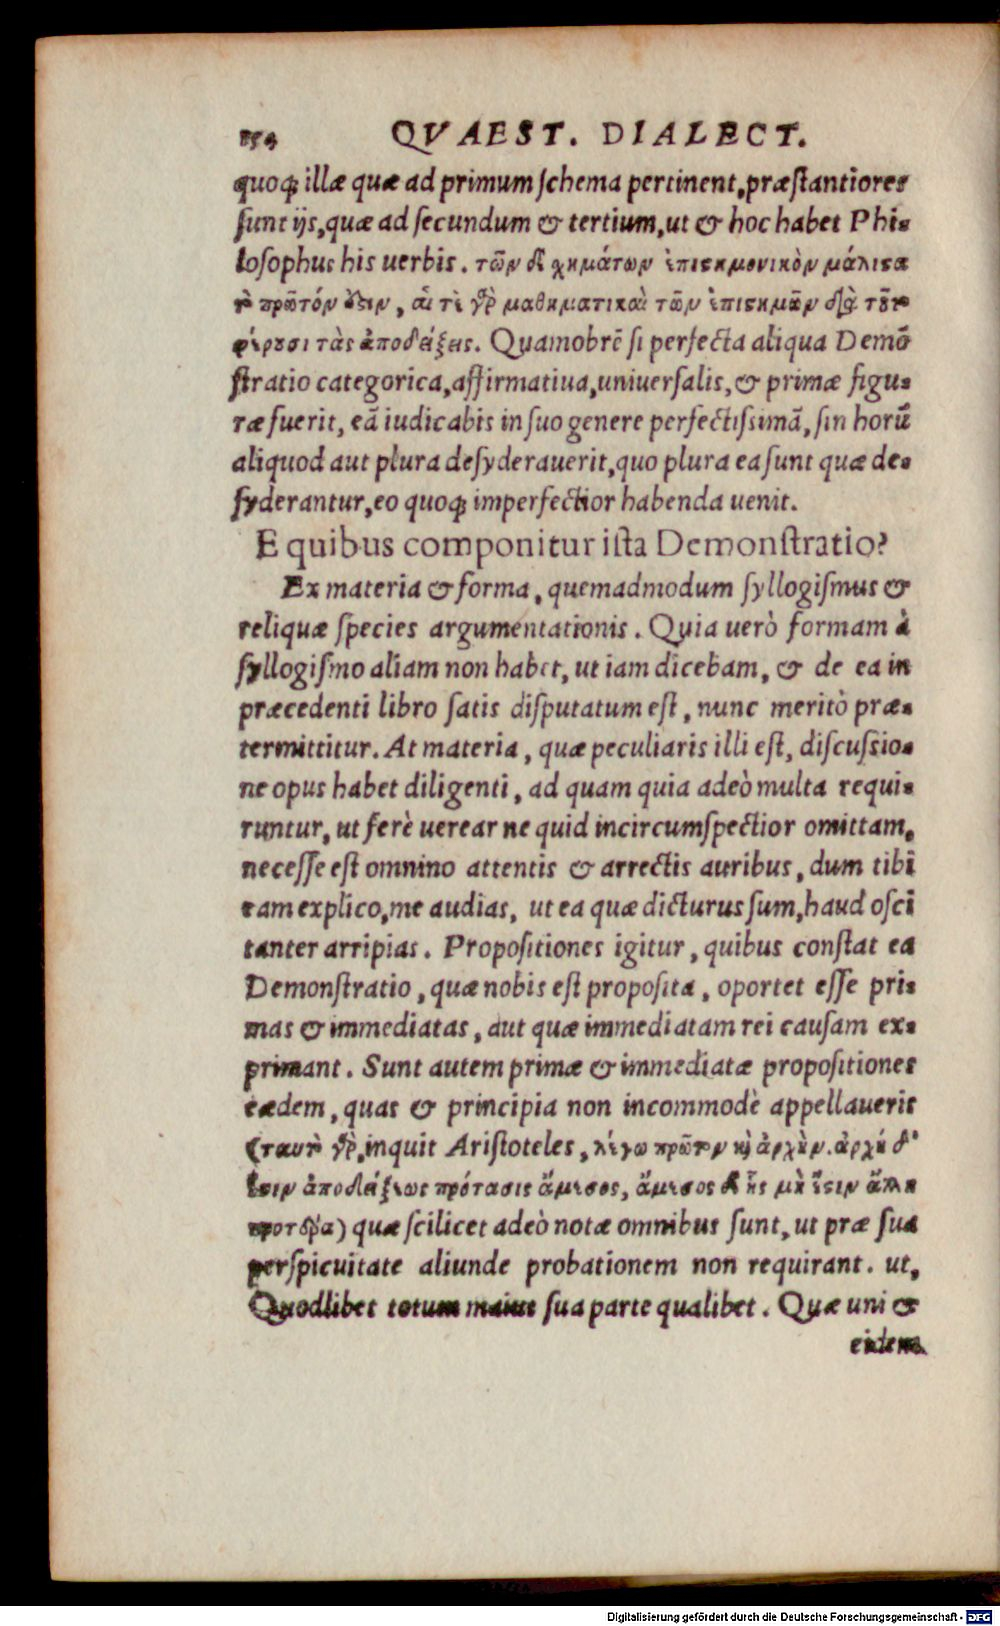 154 QVAEST. DIALECT.
quoq; illæ quæ ad primum ſchema pertinent, præſtantiores
ſunt ijs, quæ ad ſecundum & tertium, ut & hoc habet Phi-
loſophus his uerbis. τῶν δὲ χημάτων ἐπιϛημονικὸν μάλιϛα
τὸ πρῶτόν ὅϛιν, αἵ τε γὰρ μαθηματικαὶ τῶν ἐπιϛημῶν διὰ τούτου
φέρουσι τὰς ἀποδείξεις. Quamobrē ſi perfecta aliqua Demō
ſtratio categorica, affirmatiua, uniuerſalis, & primæ figu-
ræ fuerit, eā iudicabis in ſuo genere perfectiſsimā, ſin horū
aliquod aut plura deſyderauerit, quo plura ea ſunt quæ de-
ſyderantur, eo quoq; imperfectior habenda uenit.
E quibus componitur iſta Demonſtratio?
Ex materia & forma, quemadmodum ſyllogiſmus &
reliquæ ſpecies argumentationis. Quia uerò formam à
ſyllogiſmo aliam non habet, ut iam dicebam, & de ea in
præcedenti libro ſatis diſputatum eſt, nunc meritò præ-
termittitur. At materia, quæ peculiaris illi eſt, diſcuſsio-
ne opus habet diligenti, ad quam quia adeò multa requi-
runtur, ut ferè uerear ne quid incircumſpectior omittam,
neceſſe eſt omnino attentis & arrectis auribus, dum tibi
eam explico, me audias, ut ea quæ dicturus ſum, haud oſci
tanter arripias. Propoſitiones igitur, quibus conſtat ea
Demonſtratio, quæ nobis eſt propoſita, oportet eſſe pri-
mas & immediatas, aut quæ immediatam rei cauſam ex-
primant. Sunt autem primæ & immediatæ propoſitiones
eædem, quas & principia non incommodè appellaueris
(ταυτὸ γὰρ, inquit Ariſtoteles, λέγω πρῶτον κὴ ἀρχὴν. ἀρχὴ δ'
ἐϛιν ἀποδείξεως πρότασις ἄμεσος, ἄμεσος δὲ ἧς μὴ ἔϛιν ἄλλη
προτέρα) quæ ſcilicet adeò notæ omnibus ſunt, ut præ ſua
perſpicuitate aliunde probationem non requirant. ut,
Quodlibet totum maius ſua parte qualibet. Quæ uni &
eidem
Digitalisierung gefördert durch die Deutsche Forschungsgemeinschaft - DFG